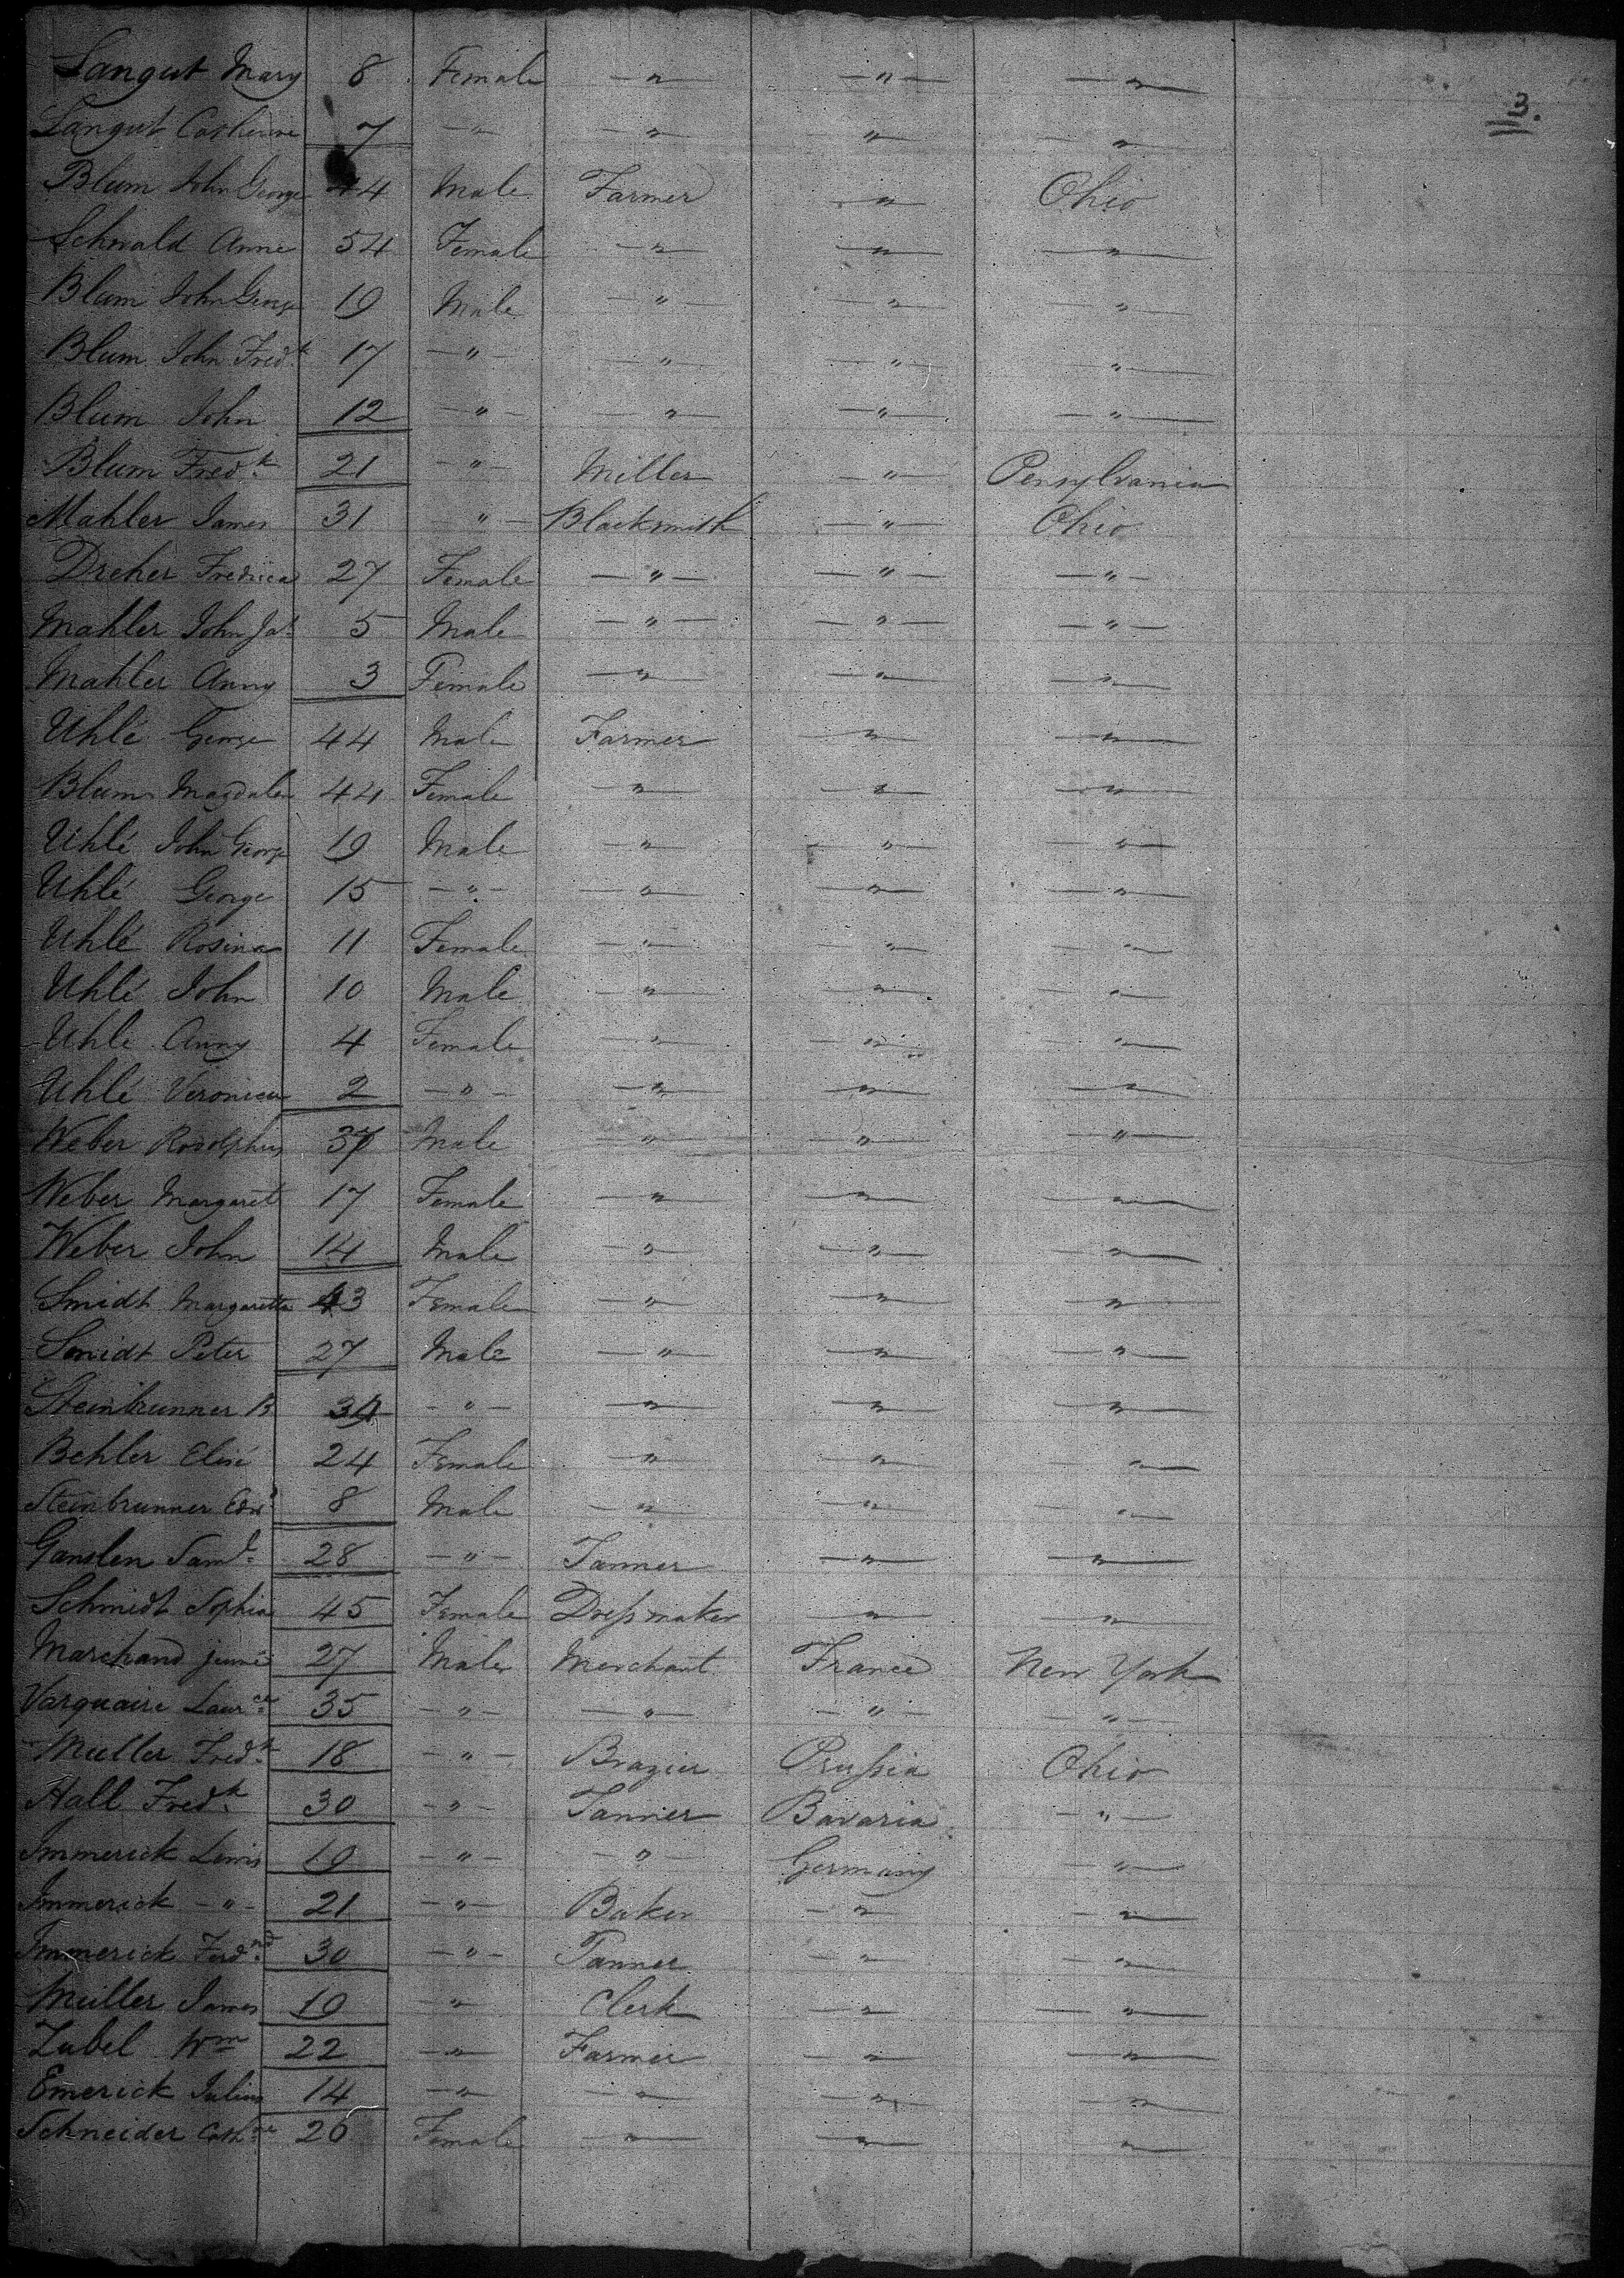 3.
Langut Mary 8 Female " " "
Langut Catherine 7 " " " "
Blum John George 44 Male Farmer " Ohio
Schwald Anne 54 Female " " "
Blum John George 19 Male " " "
Blum John Fredk 17 " " " "
Blum John 12 " " " "
Blum Fredk 21 " Miller " Pensylvania
Mahler James 31 " Blacksmith " Ohio
Dreher Fredrica 27 Female " " "
Mahler John Jas 5 Male " " "
Mahler Anny 3 Female " " "
Uhlé George 44 Male Farmer " "
Blum Magdalen 44 Female " " "
Uhlé John George 19 Male " " "
Uhlé George 15 " " " "
Uhlé Rosina 11 Female " " "
Uhlé John 10 Male " " "
Uhlé Anny 4 Female " " "
Uhlé Veronica 2 " " " "
Weber Rodolphus 37 Male " " "
Weber Margaret 17 Female " " "
Weber John 14 Male " " "
Smidt Margaretta 43 Female " " "
Smidt Peter 27 Male " " "
Steinbrunner B " " " "
Behler Elisé 24 Female " " "
Steinbrunner Edwd 8 Male " " "
Ganslen Saml 28 " Tanner " "
Schmidt Sophia 45 Female Dressmaker " "
Marchand 27 Male Merchant France New York
Varquaire Laurce 35 " " " "
Muller Fredk 18 " Brazier Prussia Ohio
Hall Fredk 30 " Tanner Bavaria "
Immerick Lewis 19 " " Germany "
Immerick " 21 " Baker " "
Immerick Ferdnd 30 " Tanner " "
Muller James 19 " Clerk " "
Zubel Wm 22 " Farmer " "
Emerick Julius 14 " " " "
Schneider Cathne 26 Female " " "